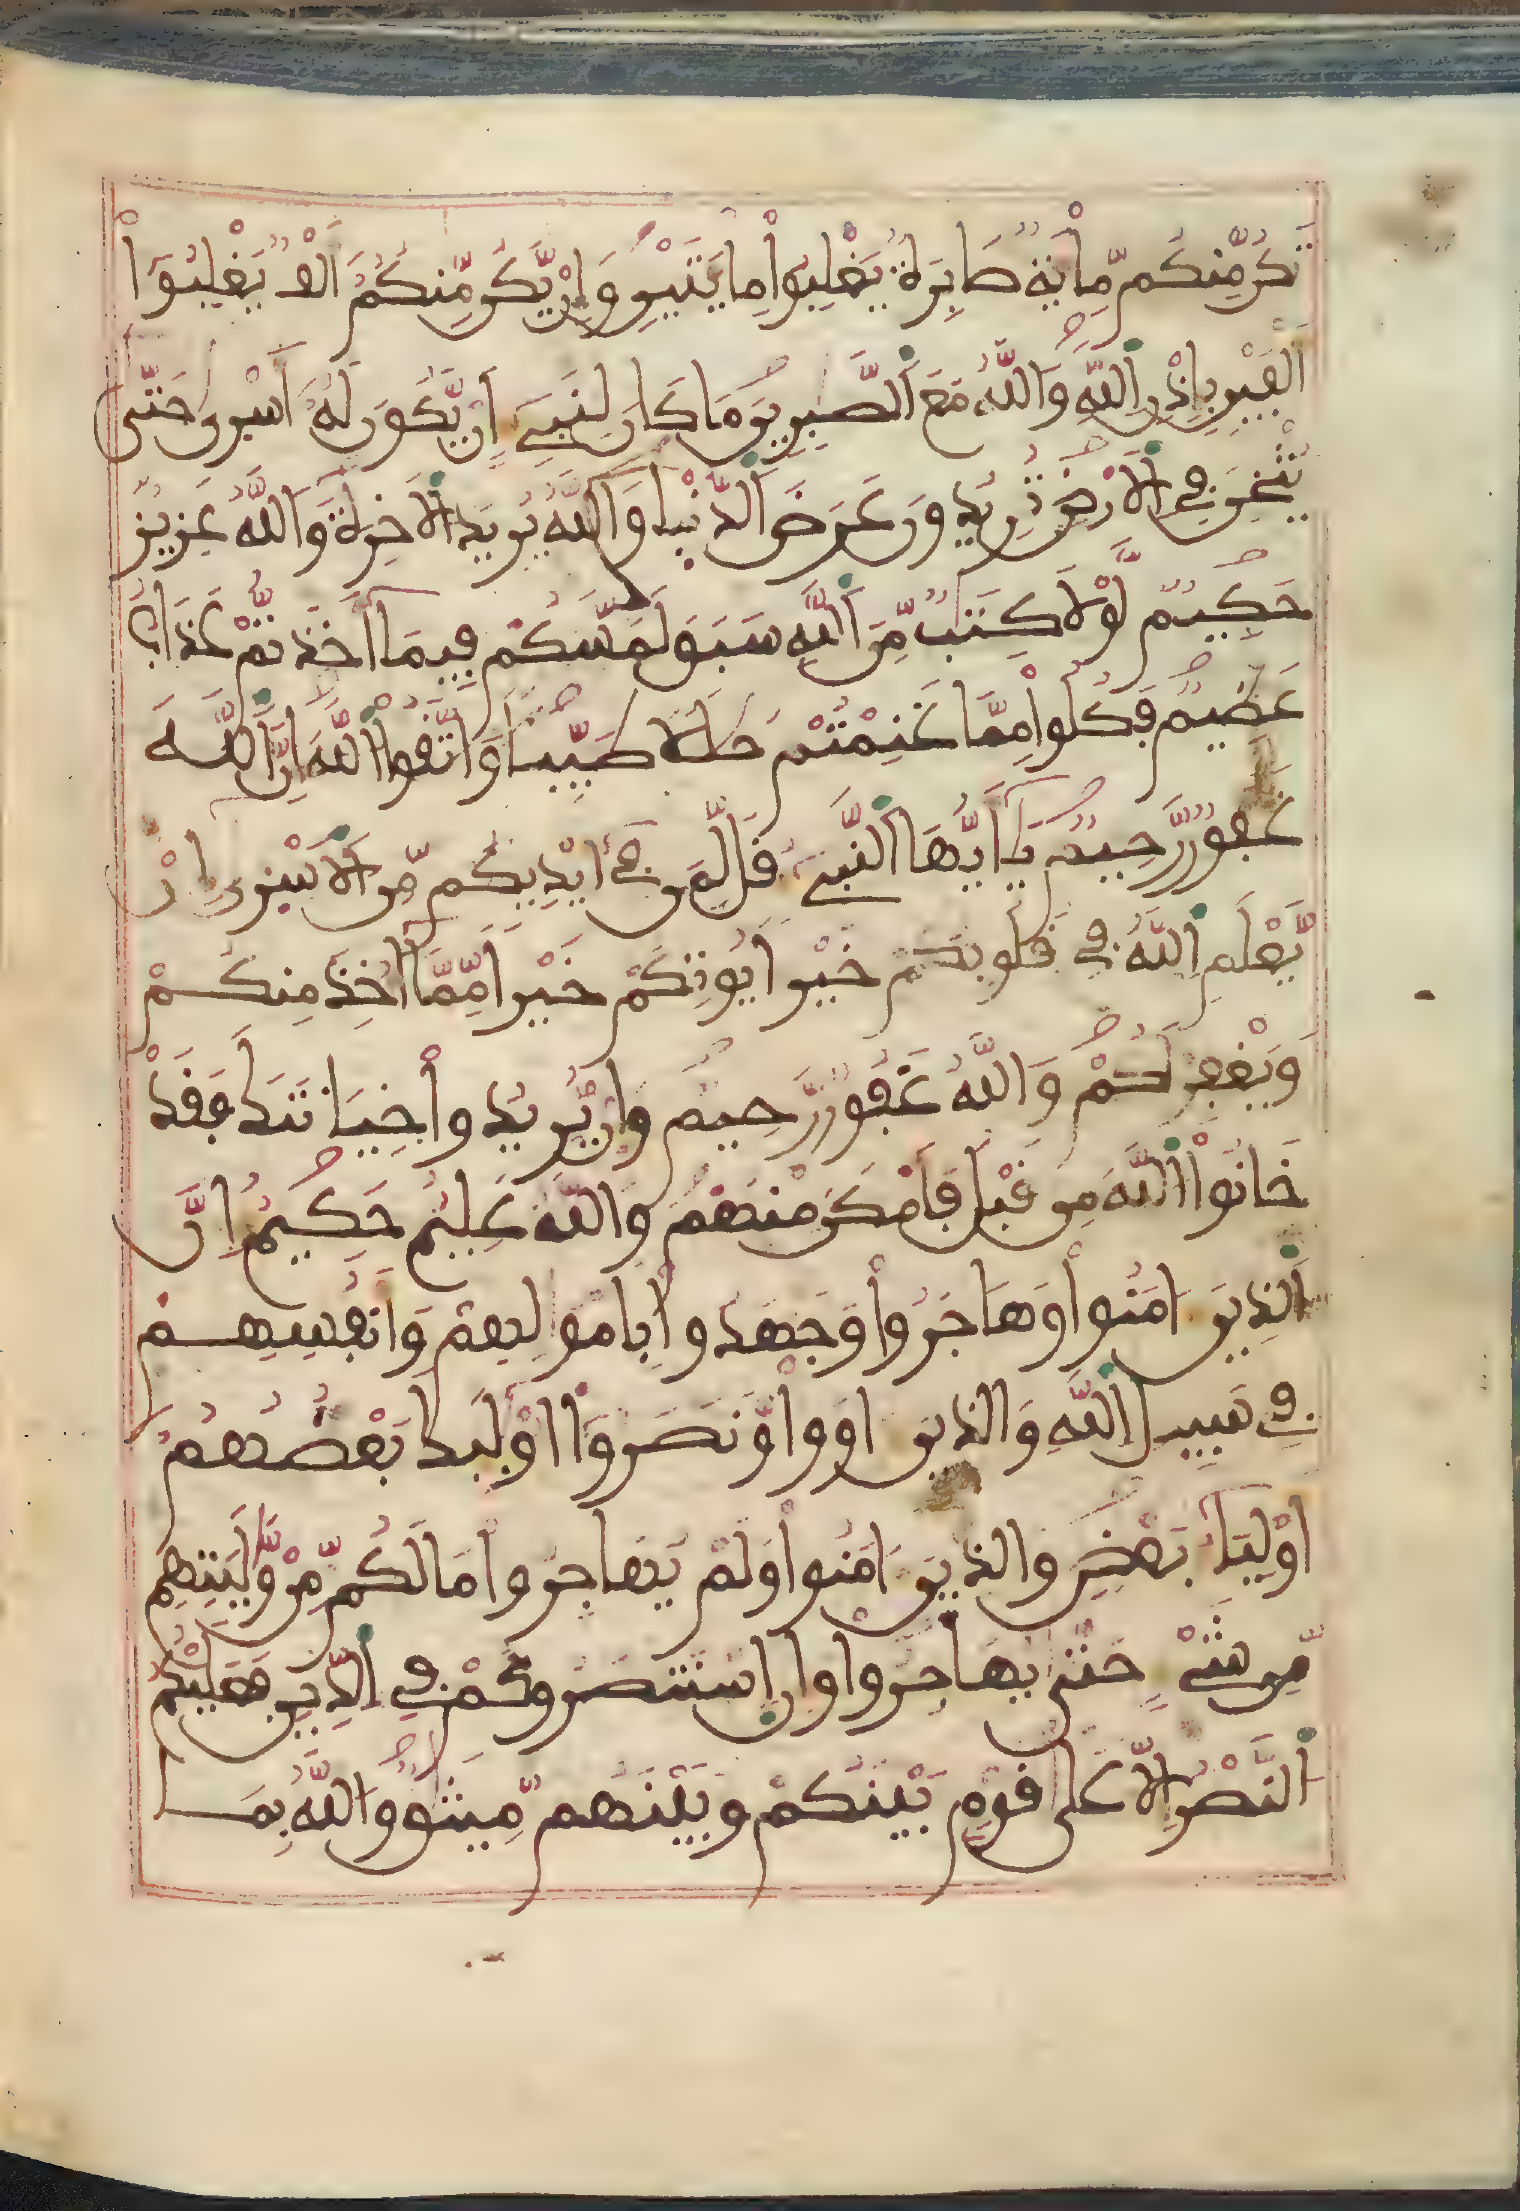 تَكُن مِّنكُم مِّاْيَةٌ صَابِرَةٌ يَغْلِبُواْ مِايَتَيْنِ وَإِنْ يَّكُن مِّنكُمُ أَلْفٌ يَغْلِبُوٓاْ
أَلْفَيْنِ بِإِذْنِ اِللَّهِ وَاللَّهُ مَعَ اَلصَّٰبِرِينَ وَمَا كَانَ لِنَبِےٍٓ أَنْ يَّكُونَ لَهُۥٓ أَسْرىٰ حَتّىٰ
يُثْخِنَ فِے اِلَارْضِ تُرِيدُونَ عَرَضَ اَلدُّنْيا وَاللَّهُ يُرِيدُ اُلَاخِرَةَ وَاللَّهُ عَزِيزٌ
حَكِيمٌ لَّوْلَا كِتَٰبٌ مِّنَ اَللَّهِ سَبَقَ لَمَسَّكُمْ فِيمَآ أَخَذتُّمْ عَذَابٌ
عَظِيمٌ فَكُلُواْ مِمَّا غَنِمْتُمْ حَلَٰلًا طَيِّباً وَاتَّقُواْ اُللَّهَ إِنَّ اَللَّهَ
غَفُورٌ رَّحِيمٌ يَٰٓأَيُّهَا اَلنَّبِےٓءُ قُل لِّمَن فِےٓ أَيْدِيكُم مِّنَ اَلَاسْرىٰٓ إِنْ
يَّعْلَمِ اِللَّهُ فِے قُلُوبِكُمْ خَيْراً يُوتِكُمْ خَيْراً مِّمَّآ أُخِذَ مِنكُمْ
وَيَغْفِرْ لَكُمْ وَاللَّهُ غَفُورٌ رَّحِيمٌ وَإِنْ يُّرِيدُواْ خِيَانَتَكَ فَقَدْ
خَانُواْ اُللَّهَ مِن قَبْلُ فَأَمْكَنَ مِنْهُمْ وَاللَّهُ عَلِيمٌ حَكِيمٌ إِنَّ
اَلذِينَ ءَامَنُواْ وَهَاجَرُواْ وَجَٰهَدُواْ بِأَمْوَٰلِهِمْ وَأَنفُسِهِمْ
فِے سَبِيلِ اِللَّهِ وَالذِينَ ءَاوَواْ وَّنَصَرُوٓاْ أُوْلَٰٓئِكَ بَعْضُهُمُ
أَوْلِيَآءُ بَعْضٍ وَالذِينَ ءَامَنُواْ وَلَمْ يُهَاجِرُواْ مَا لَكُم مِّنْ وَّلَٰيَتِهِم
مِّن شَےْءٍ حَتّىٰ يُهَاجِرُواْ وَإِنِ اِسْتَنصَرُوكُمْ فِے اِلدِّينِ فَعَلَيْكُمُ
اُلنَّصْرُ إِلَّا عَلىٰ قَوْمِۢ بَيْنَكُمْ وَبَيْنَهُم مِّيثَٰقٌ وَاللَّهُ بِمَا